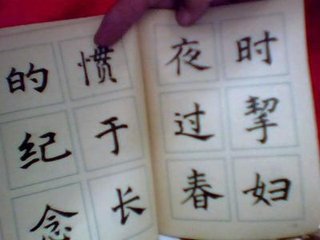 的纪念
惯于长
夜过春
时挈妇